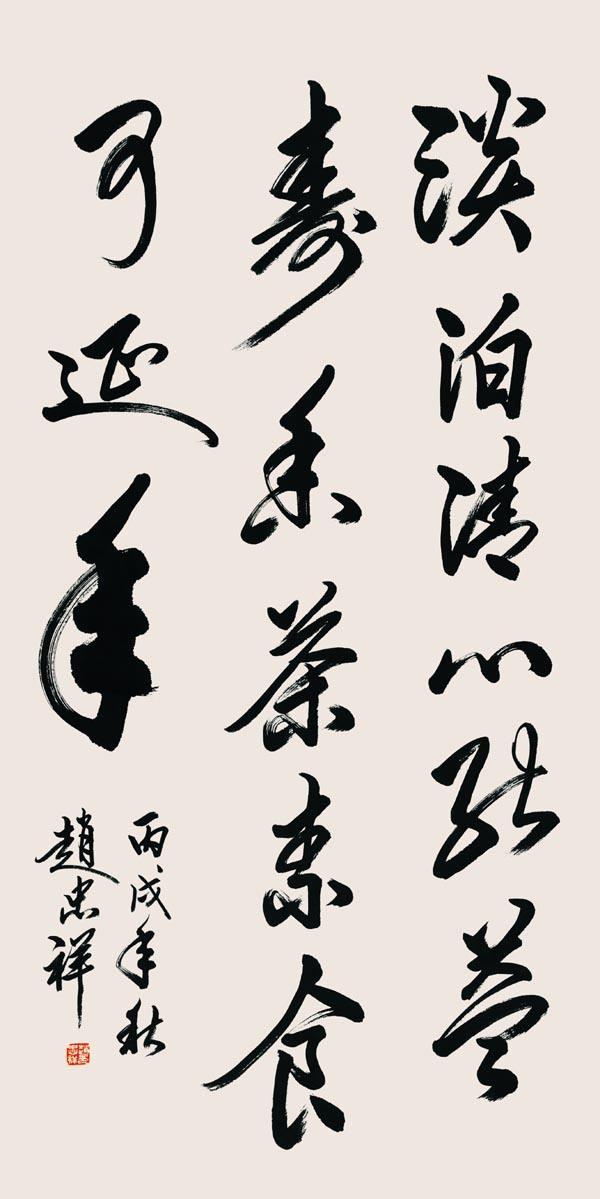 淡泊清心能益
壽香茶素食
可延年
丙戌年秋
趙忠祥